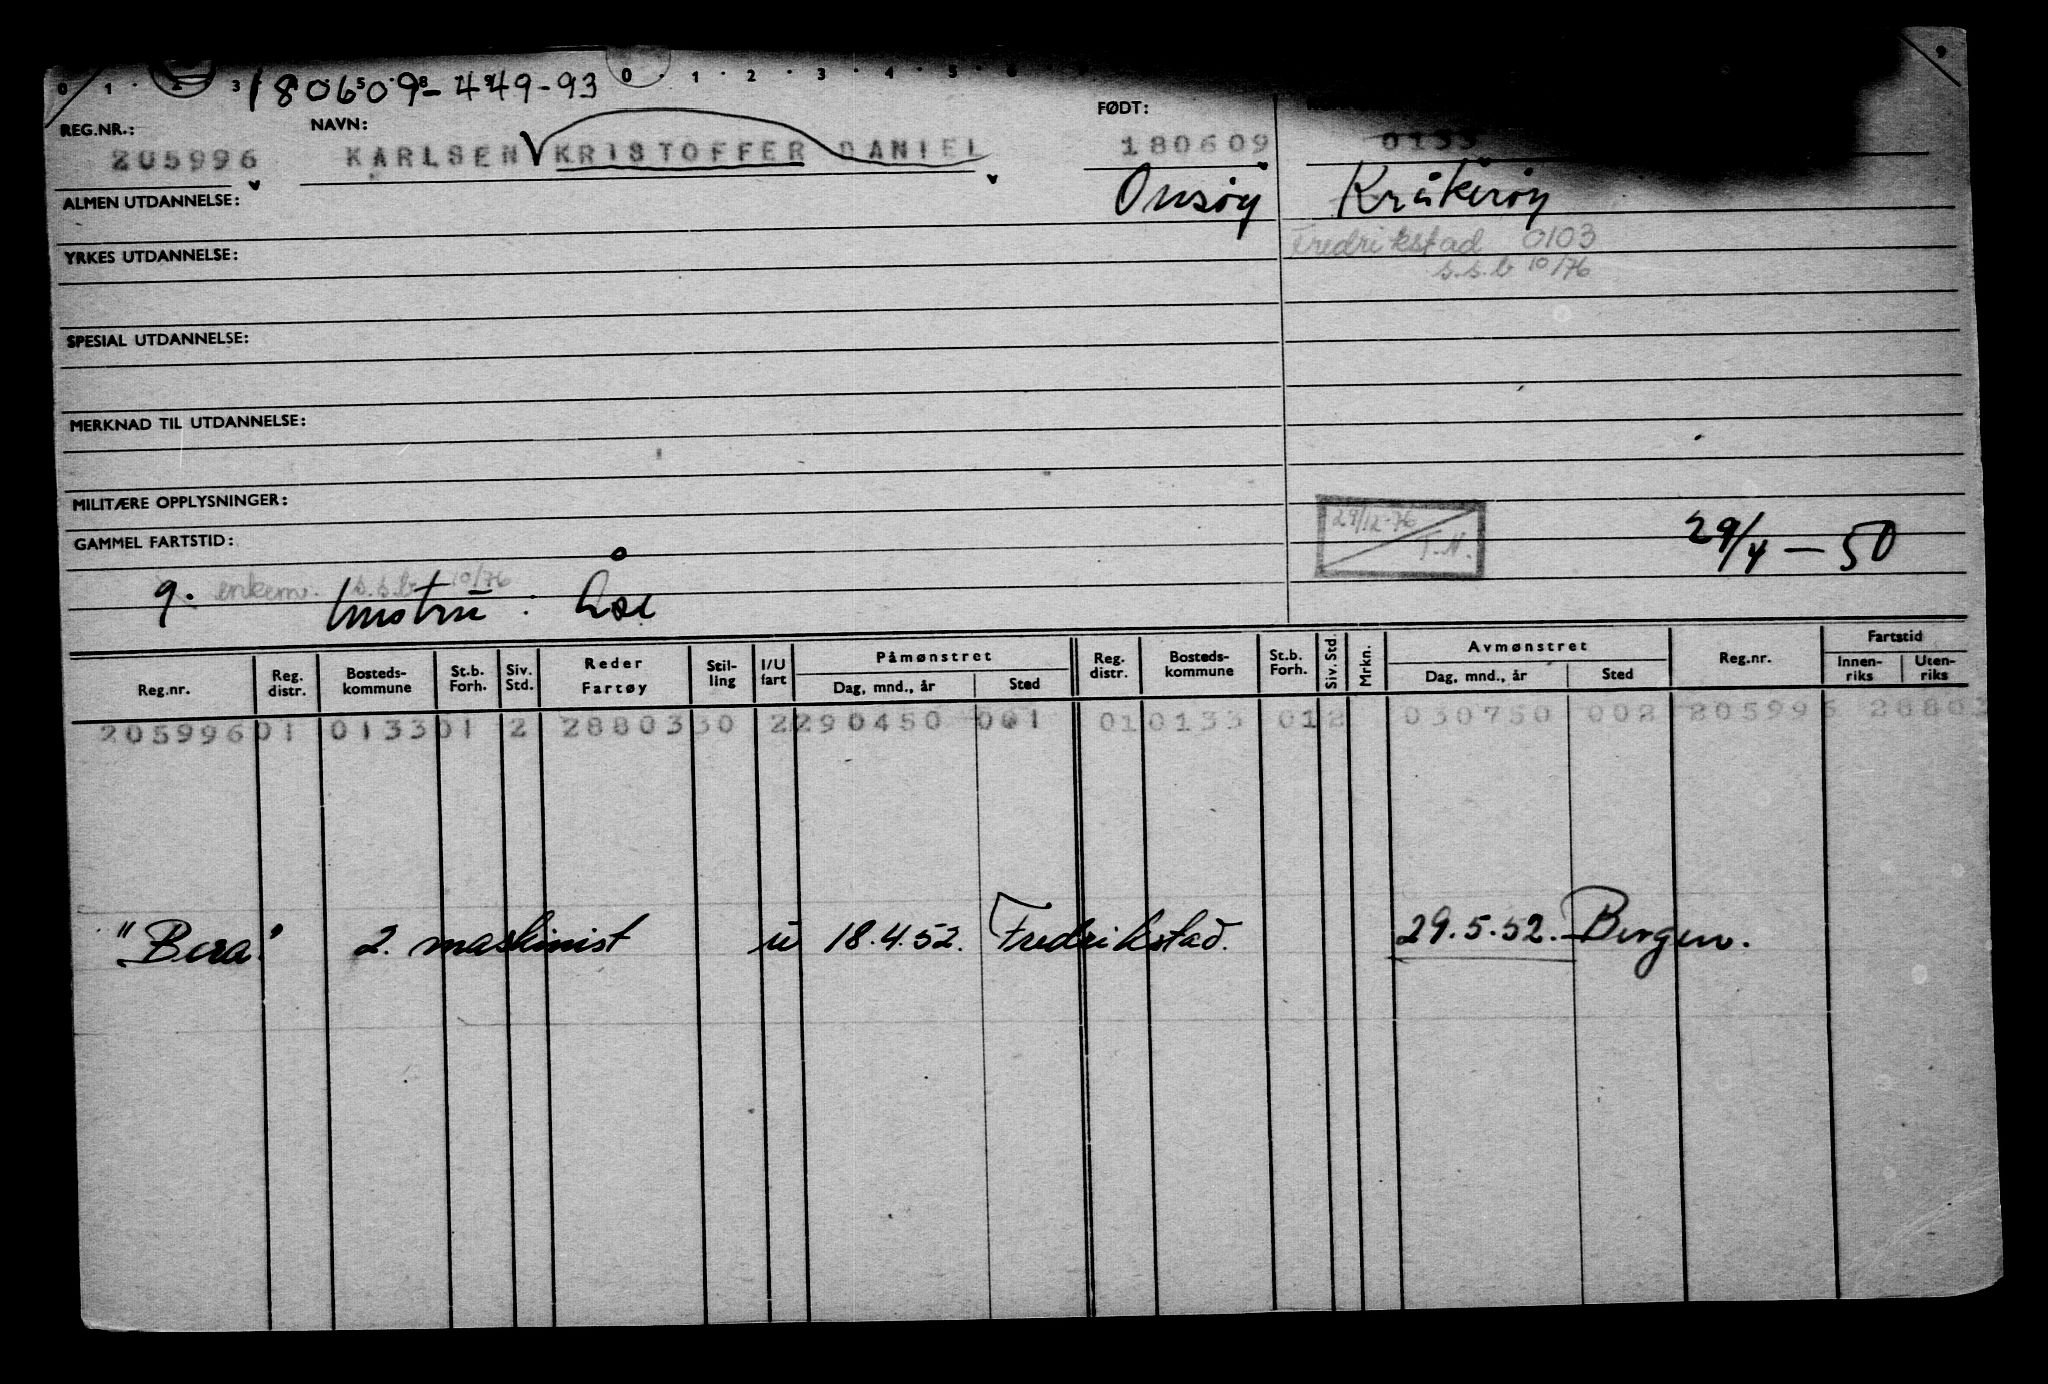 0 1 2 3 180609-449-93 0 · 1 · 2 · 3 · 4 · 5 · 6 9
REG.NR.: NAVN: FØDT:
205996 KARLSEN KRISTOFFER DANIEL 180609 0133
ALMEN UTDANNELSE: Onsøy Kråkerøy
Fredrikstad 0103
YRKES UTDANNELSE: s.s.b 10/76
SPESIAL UTDANNELSE:
MERKNAD TIL UTDANNELSE:
MILITÆRE OPPLYSNINGER:
29/12-76 T.N. 29/4 - 50
GAMMEL FARTSTID:
g. enkem. s.s.b 10/76
Hustru :
Reg.nr. Reg. distr. Bosteds-kommune St.b. Forh. Siv. Std. Reder Fartøy Stil-ling I/U fart Påmønstret Dag, mnd., år Sted Reg. distr. Bosteds-kommune St.b. Forh. Siv. Std. Mrkn. Avmønstret Dag, mnd., år Sted Reg.nr. Fartstid Innen-riks Uten-riks
205996 01 0133 01 2 28803 30 2 290450 001 01 0133 01 2 030750 002 205996 28803
"Bera" 2. maskinist u 18.4.52. Fredrikstad. 29.5.52. Bergen.